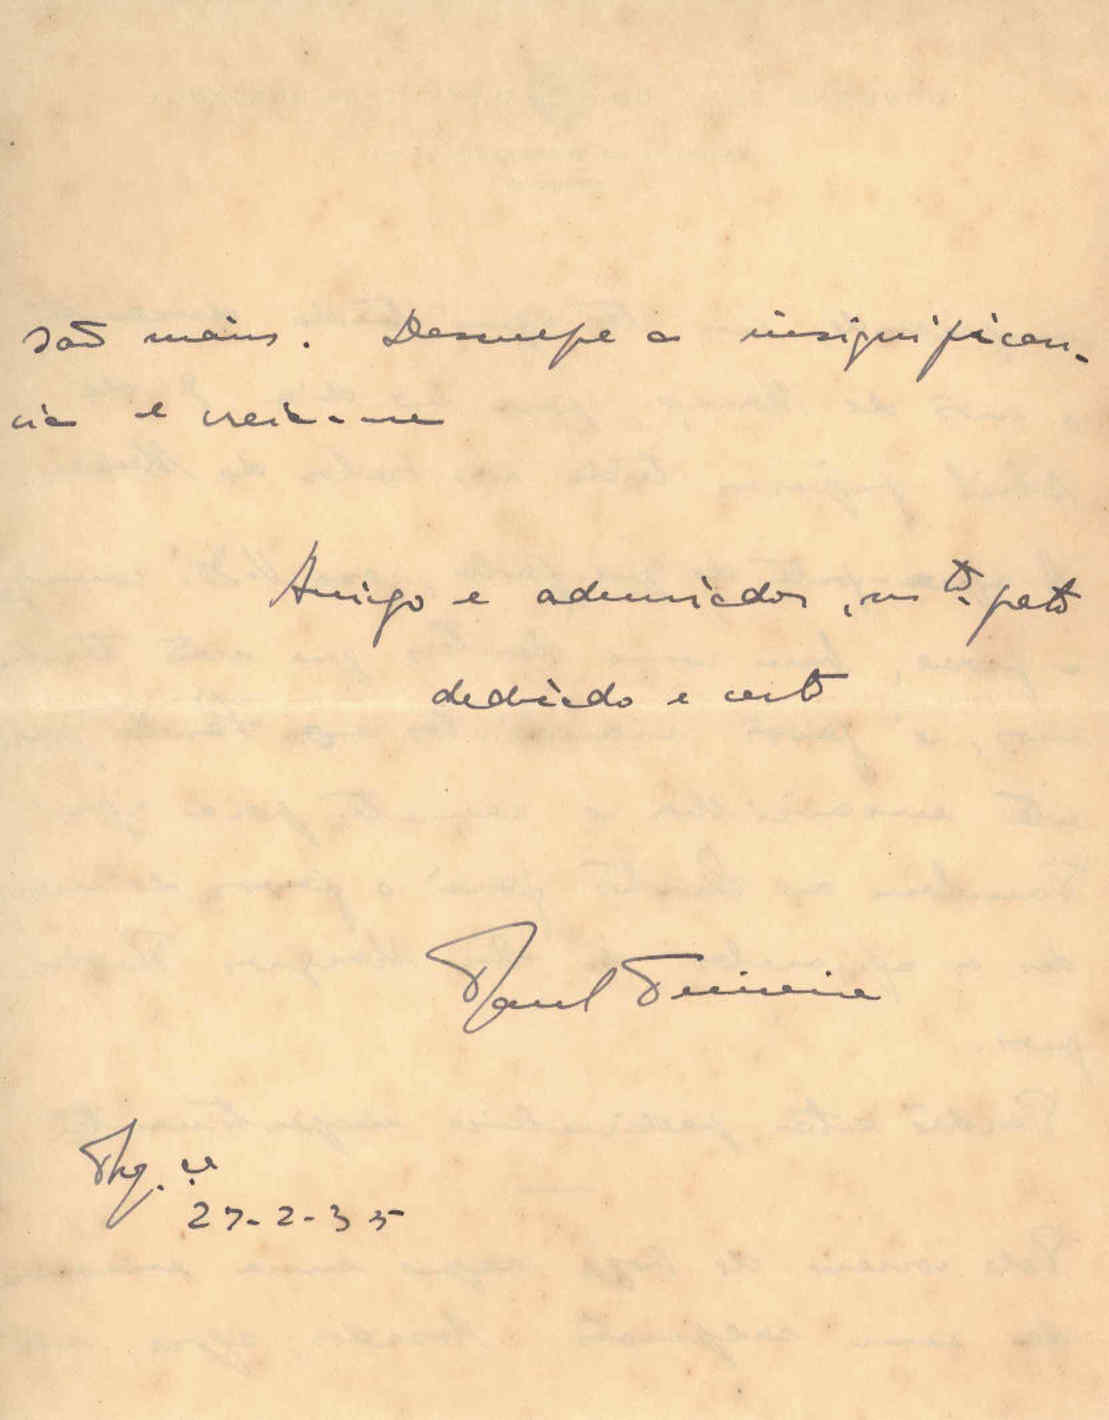 são mais. Desculpe a insignifican-
cia e creia-me
Amigo e admirador, mto. gato
dedicado e certo
Raul Teixeira
27-2-35